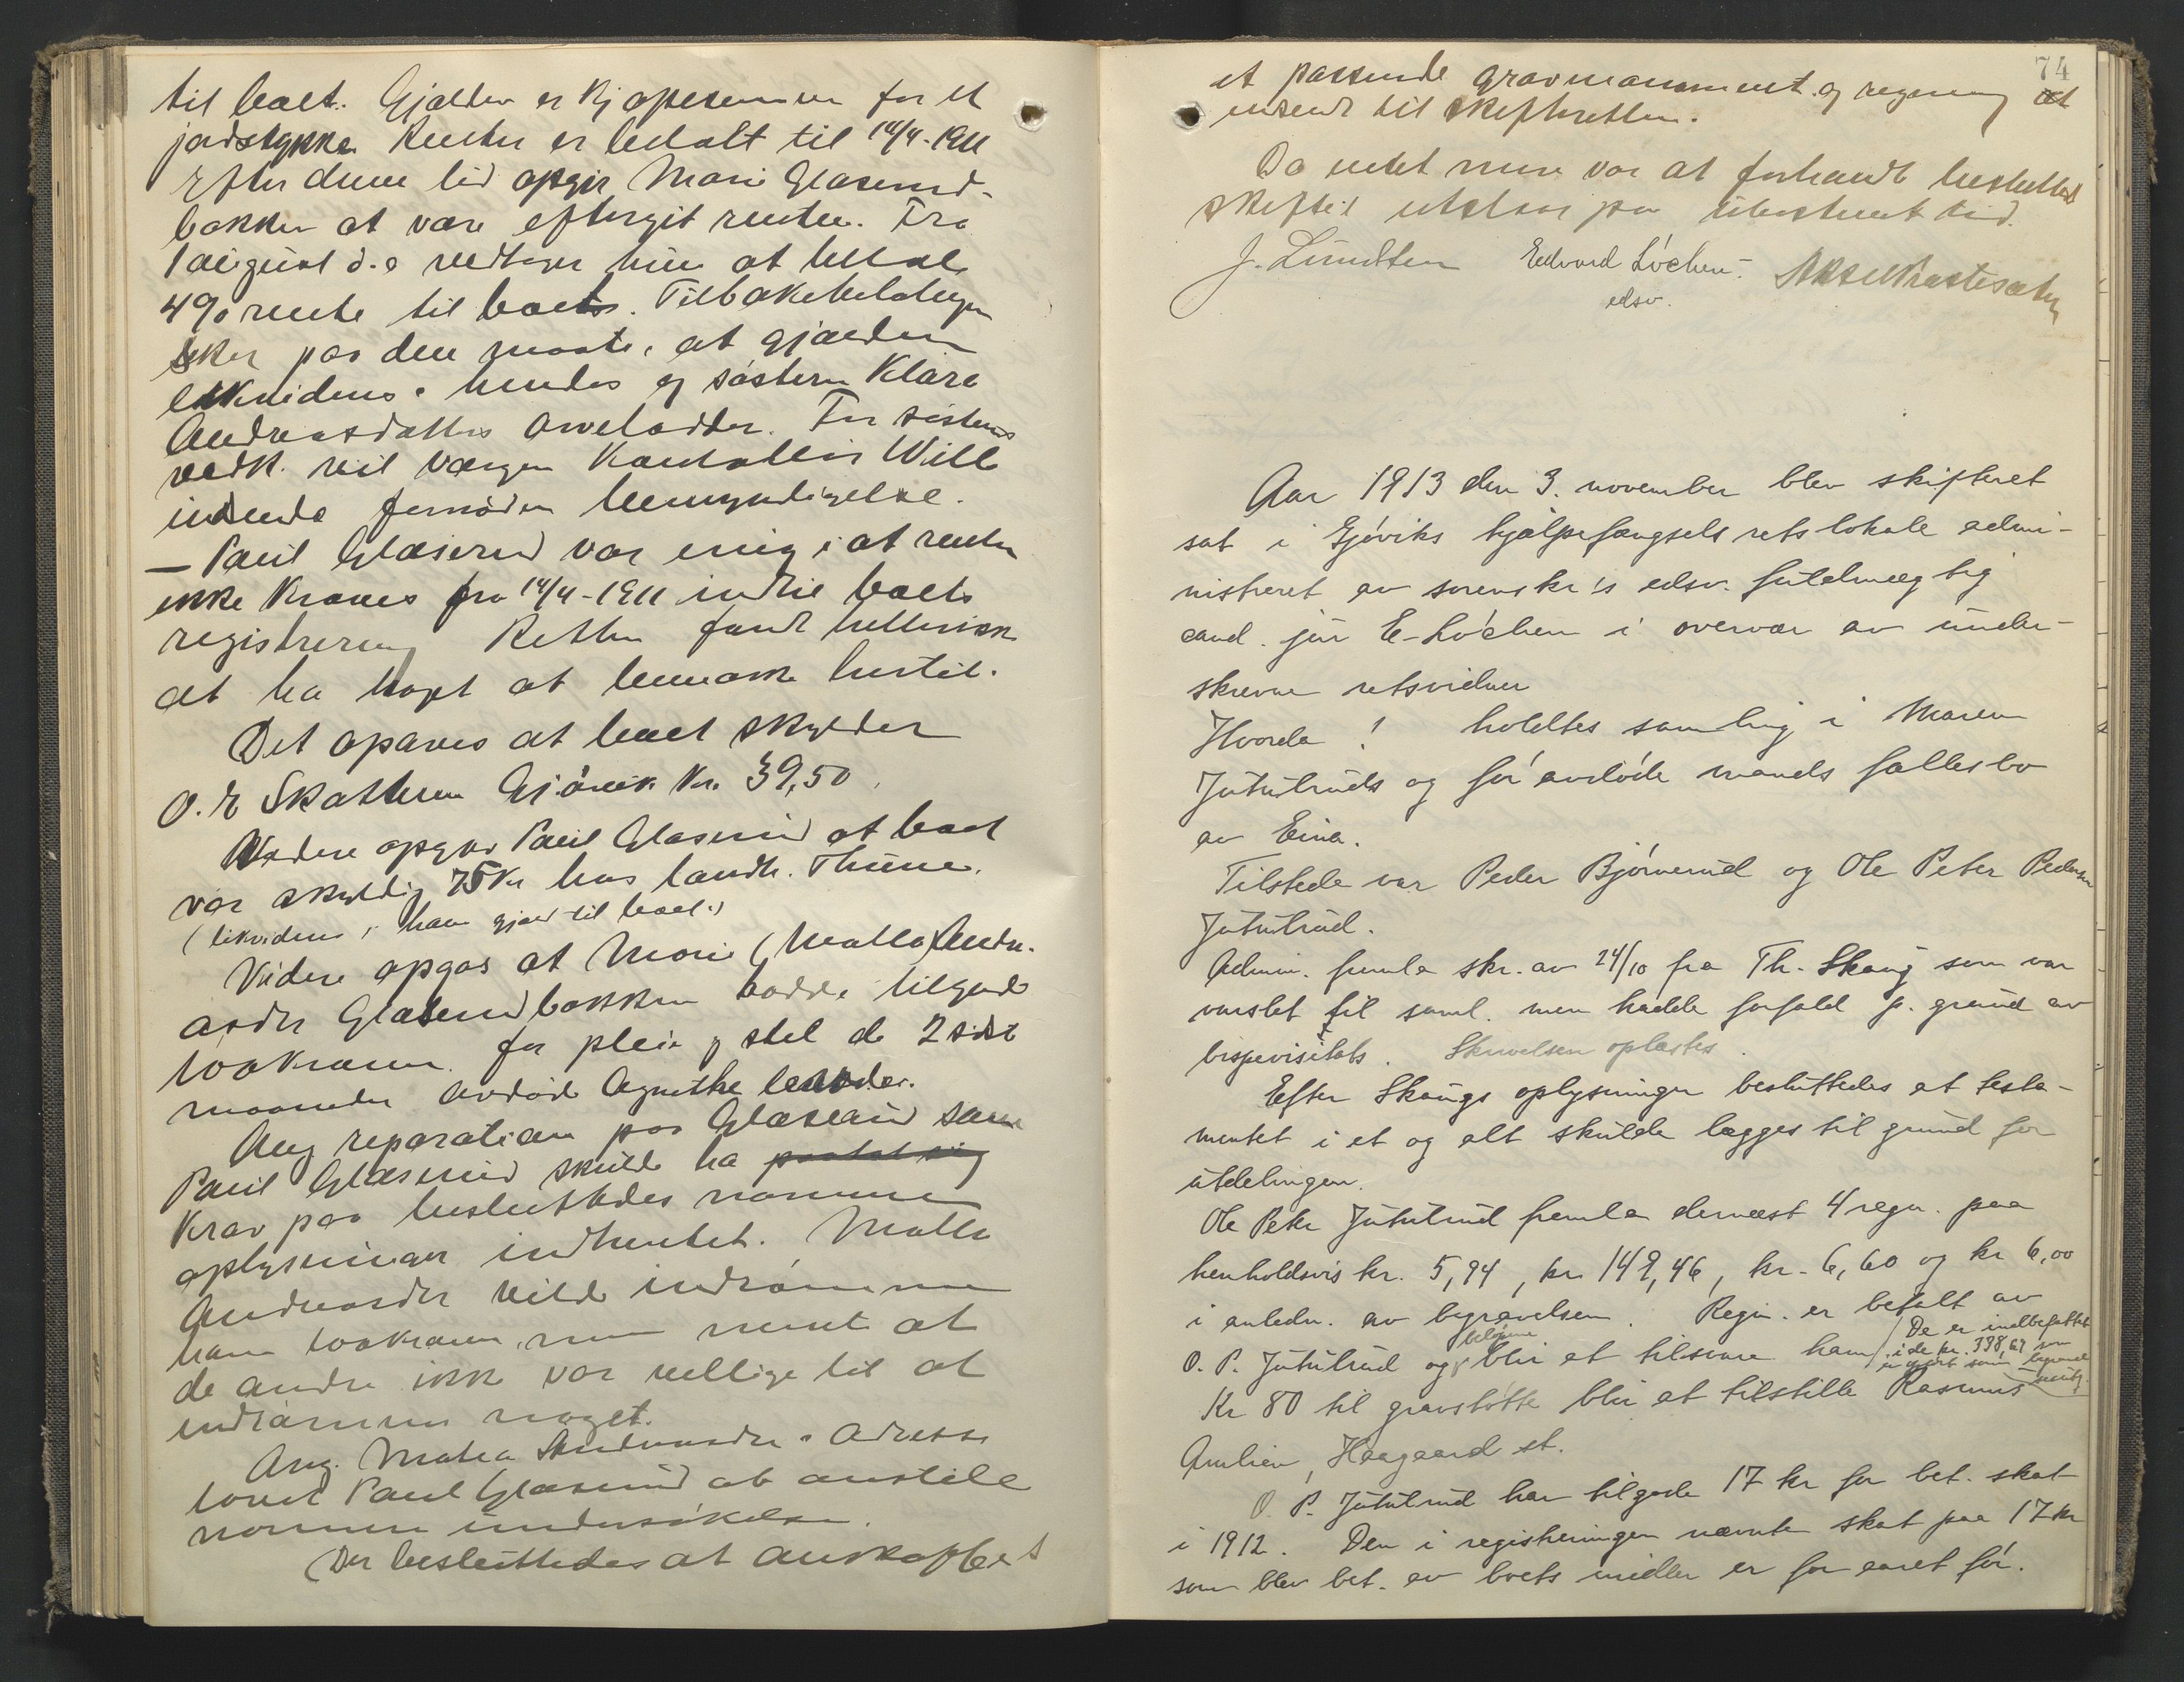 til boet. Gjælden er kjøpesummen for et
jordstykke Renter er betalt til 14/4-1911
Efter denne tid opgir Mari Glæserud-
bakken at være eftergit renten. Fra
1 august d.a vedtager hun at betale
4% rente til boet. Tilbakebetalingen
sker paa den maate, at gjælden
likvideres i hendes og søsteren Klara
Andreasdatters arvelodder. For sistens
vedk. vil værgen Kontollør Wille
indhente fornøden bemyndigelse.
— Paul Glæserud var enig i at renter
ikke kræves fra 14/4-1911 indtil boets
registrering Retten fandt hellerikke
at ha noget at bemerke hertil.
Det opgaves at boet skylder
O. R Skatteren Gjøvik kr. 39,50
Videre opgav Paul Glæserud at boet
var skyldig 75 kr hos landh. Thune.
(likvideres i hans gjæld til boet.)
Videre opgas at Mari (Mathea) Andre-
asdtr Glæserudbakken hadde tilgode
100 kroner for pleie og stel de 2 siste
maaneder avdøde Agnethe levede.
Ang reparation paa Glæserud som
Paul Glæserud skulde ha paatat sig
krav paa besluttedes nærmere
oplysninger indhentet. Mathea
Andreasdtr vilde indrømme
ham 100 kroner, men mente at
de andre ikke var villige til at
indrømme noget.
Ang. Mathea Andreasdtr.s adresse
lovet Paul Glæserud at anstille
nærmere undersøkelse.
Der besluttedes at anskaffes
74
et passende gravmonument og regning at
indsende til skifteretten.
Da intet mere var at forhandle besluttedes
skiftet utsat paa ubestemt tid.
J. Lundsten Edvard Løchen. Aksel Prestesæter
edsv.
Aar 1913 den 3. november blev skifteret
sat i Gjøviks hjælpefængsels retslokale admi-
nistreret av sorenskr's edsv. fuldmægtig
cand. jur E. Løchen i overvær av under-
skrevne retsvidner
Hvorda! holdtes samling i Maren
Jutulruds og før avdøde mands fællesbo
av Eina.
Tilstede var Peder Bjørnerud og Ole Peter Pedersen
Jutulrud.
Admin. fremla skr. av 24/10 fra Th. Skaug som var
varslet til saml. men hadde forfald p. grund av
bispevisitats. Skrivelsen oplæstes.
Efter Skaugs oplysninger besluttedes at testa-
mentet i et og alt skulde lægges til grund for
utdelingen.
Ole Peter Jutulrud fremla dernæst 4 regn. paa
henholdsvis kr. 5,94, kr. 149,46, kr. 6,60 og kr 6,00
i anledn. av begravelsen. Regn. er betalt av
O. P. Jutulrud og beløpene blir at tilsvare ham (De er indbefattet
i de kr. 338,67 som
er opført som begravel-
sesutg.
Kr 80 til gravstøtte blir at tilstille Rasmus
Amlien, Haagaard st.
O. P. Jutulrud har tilgode 17 kr for bet. skat
i 1912. Den i registreringen nævnte skat paa 17 kr
som blev bet. av boets midler er for aaret før.